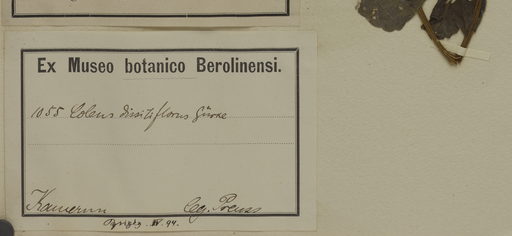 Ex Museo botanico Berolinensi.
1055 Coleus dissitiflorus Gürke
Kamerun Leg. Preuss
IV. 94.